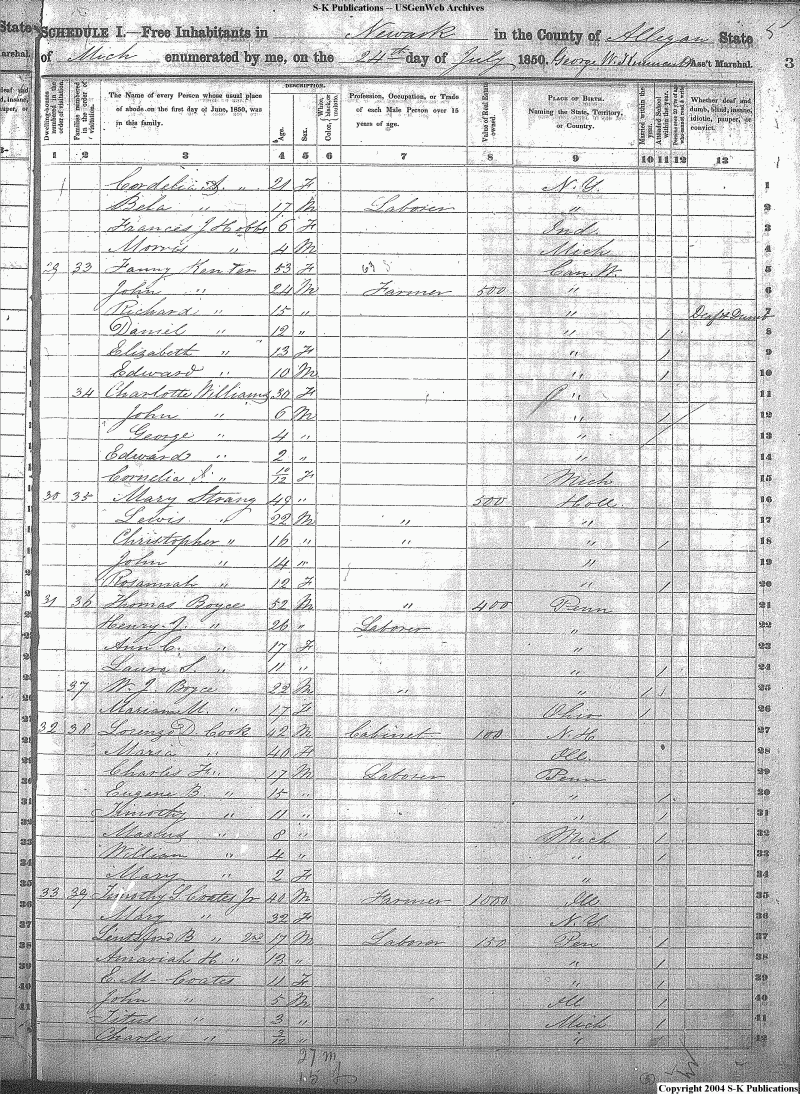 S-K Publications -- USGenWeb Archives
SCHEDULE I.--Free Inhabitants in Newark in the County of Allegan State 5
of Mich enumerated by me, on the 24th day of July 1850. George W. Ass't Marshal. 3
DESCRIPTION.
Dwelling-houses numbered in the order of visitation. Families numbered in the order of visitation. The Name of every Person whose usual place of abode on the first day of June, 1850, was in this family. Age. Sex. Color, White, black, or mulatto. Profession, Occupation, or Trade of each Male Person over 15 years of age. Value of Real Estate owned. PLACE OF BIRTH. Naming the State, Territory, or Country. Married within the year. Attended School within the year. Whether deaf and dumb, blind, insane, idiotic, pauper, or convict.
1 2 3 4 5 6 7 8 9 10 11 12 13
Cordelia A. " 21 F N.Y. 1
Bela " 17 M Laborer " 2
Frances J Hobbs 6 F Ind. 3
Morris " 4 M Mich 4
29 33 Fanny Kenter 53 F Can. W. 5
John " 24 M Farmer 500 " 6
Richard " 15 " " Deaf & Dumb 7
Daniel " 12 " " / 8
Elizabeth " 13 F " / 9
Edward " 10 M " / 10
34 Charlotte Williams 30 F " 11
John " 6 M " / 12
George " 4 " " / 13
Edward " 2 " " 14
Cornelia J. " 10/12 F Mich 15
30 35 Mary Strang 49 " 500 Holl 16
Lewis " 22 M " " 17
Christopher " 16 " " " / 18
John " 14 " " 19
Rosannah " 12 F " / 20
31 36 Thomas Boyce 52 M " 400 Penn 21
Henry J. " 26 " Laborer " 22
Ann C. " 17 F 23
Laura S. " 11 " " / 24
37 W. J. Boyce 22 M " " 1 25
Mariam M. " 17 F Ohio 1 26
32 38 Lorenzo D Cook 42 M Cabinet 100 N.H 27
Maria " 40 F Ill. 28
Charles F. " 17 M Laborer Penn 29
Eugene B " 15 " " / 30
Timothy " 11 " " / 31
" 8 " Mich / 32
William " 4 " " / 33
Mary " 2 F "
33 39 Timothy S. Coates Jr 40 M Farmer 1000 Ill. 35
Mary " 32 F N.Y. 36
B " 2nd 17 M Laborer 150 Pen / 37
Amariah H " 13 " " / 38
E. M. Coates 11 F " / 39
John " 5 M Ill / 40
Titus " 3 " Mich / 41
Charles " 3/12 " "
27 m
15 f
Copyright 2004 S-K Publications